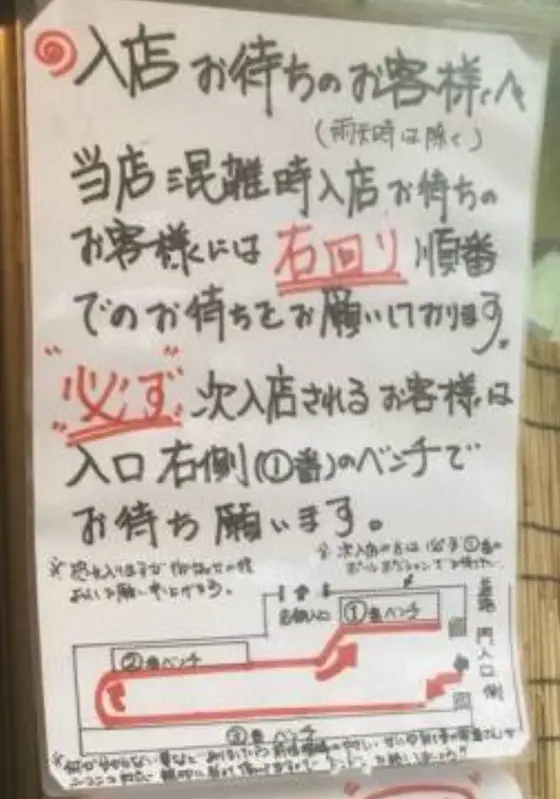 入店お待ちのお客様へ
(雨天時は除く)
当店混雑時入店お待ちの
お客様には右回り順番
でのお待ちをお願いしております。
"必ず"次入店されるお客様は
入口右側(①番)のベンチで
お待ち願います。
※恐れ入りますが
※次入店の方は必ず①番の
ポールポジションで
よろしくお願い申し上げます。
店側入口
①番ベンチ
道路
門入口側
②番ベンチ
③番ベンチ